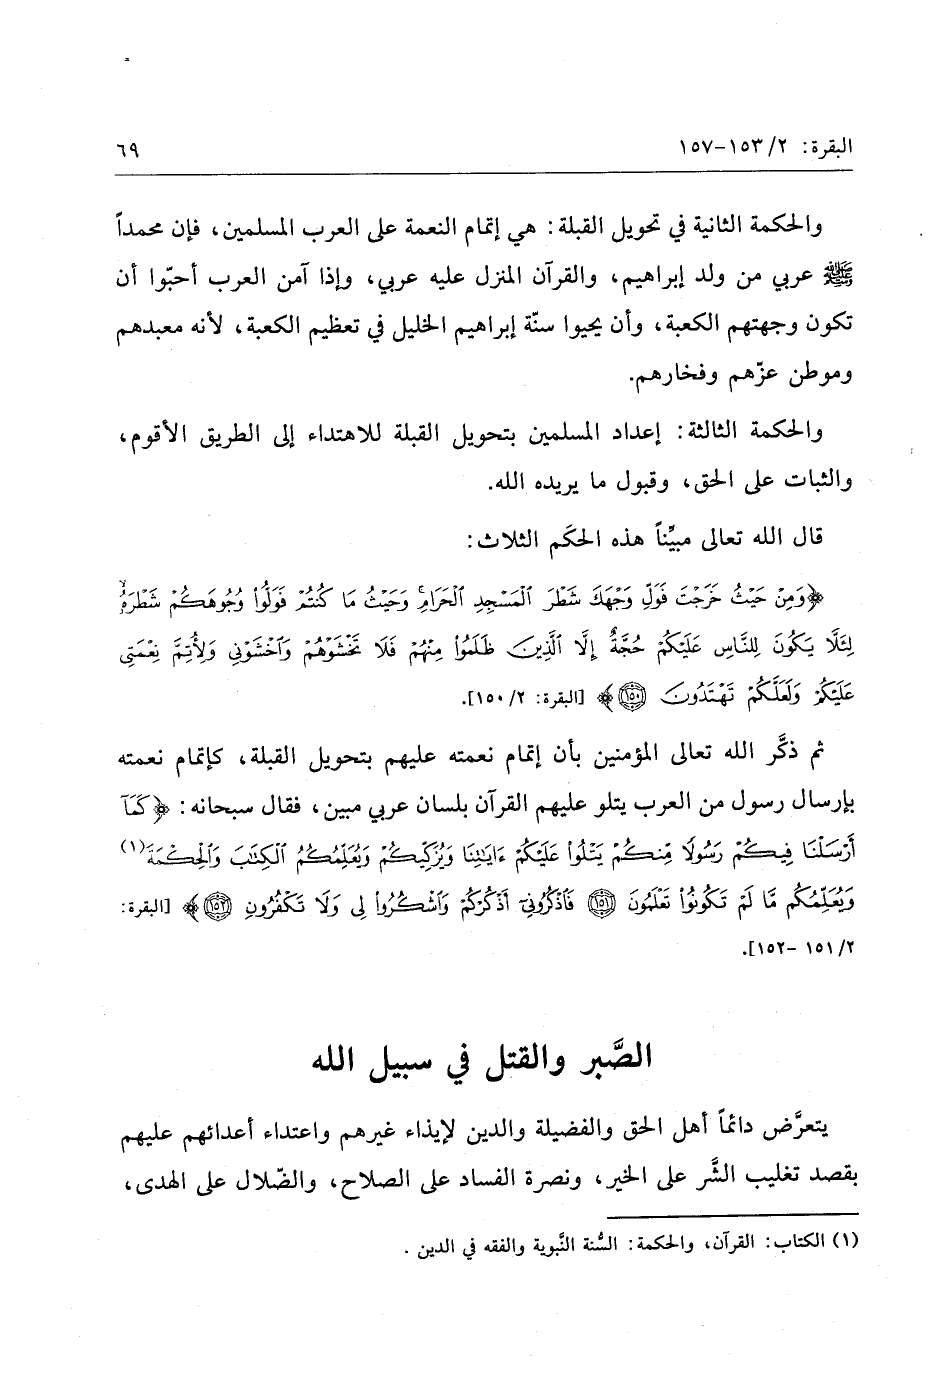 البقرة: ٢/ ١٥٣-١٥٧ ٦٩
والحكمة الثانية في تحويل القبلة: هي إتمام النعمة على العرب المسلمين، فإن محمداً
ﷺ عربي من ولد إبراهيم، والقرآن المنزل عليه عربي، وإذا آمن العرب أحبّوا أن
تكون وجهتهم الكعبة، وأن يحيوا سنّة إبراهيم الخليل في تعظيم الكعبة، لأنه معبدهم
وموطن عزّهم وفخارهم.
والحكمة الثالثة: إعداد المسلمين بتحويل القبلة للاهتداء إلى الطريق الأقوم،
والثبات على الحق، وقبول ما يريده الله.
قال الله تعالى مبيِّناً هذه الحكَم الثلاث:
﴿وَمِنْ حَيْثُ خَرَجْتَ فَوَلِّ وَجْهَكَ شَطْرَ ٱلْمَسْجِدِ ٱلْحَرَامِۚ وَحَيْثُ مَا كُنتُمْ فَوَلُّوا۟ وُجُوهَكُمْ شَطْرَهُۥ
لِئَلَّا يَكُونَ لِلنَّاسِ عَلَيْكُمْ حُجَّةٌ إِلَّا ٱلَّذِينَ ظَلَمُوا۟ مِنْهُمْ فَلَا تَخْشَوْهُمْ وَٱخْشَوْنِى وَلِأُتِمَّ نِعْمَتِى
عَلَيْكُمْ وَلَعَلَّكُمْ تَهْتَدُونَ ١٥٠﴾ [البقرة: ٢/ ١٥٠].
ثم ذكَّر الله تعالى المؤمنين بأن إتمام نعمته عليهم بتحويل القبلة، كإتمام نعمته
بإرسال رسول من العرب يتلو عليهم القرآن بلسان عربي مبين، فقال سبحانه: ﴿كَمَآ
أَرْسَلْنَا فِيكُمْ رَسُولًا مِّنكُمْ يَتْلُوا۟ عَلَيْكُمْ ءَايَٰتِنَا وَيُزَكِّيكُمْ وَيُعَلِّمُكُمُ ٱلْكِتَٰبَ وَٱلْحِكْمَةَ(١)
وَيُعَلِّمُكُم مَّا لَمْ تَكُونُوا۟ تَعْلَمُونَ ١٥١ فَٱذْكُرُونِىٓ أَذْكُرْكُمْ وَٱشْكُرُوا۟ لِى وَلَا تَكْفُرُونِ ١٥٢﴾ [البقرة:
٢/ ١٥١ -١٥٢].
الصَّبر والقتل في سبيل الله
يتعرَّض دائماً أهل الحق والفضيلة والدين لإيذاء غيرهم واعتداء أعدائهم عليهم
بقصد تغليب الشَّر على الخير، ونصرة الفساد على الصلاح، والضّلال على الهدى،
(١) الكتاب: القرآن، والحكمة: السُّنة النَّبوية والفقه في الدين .